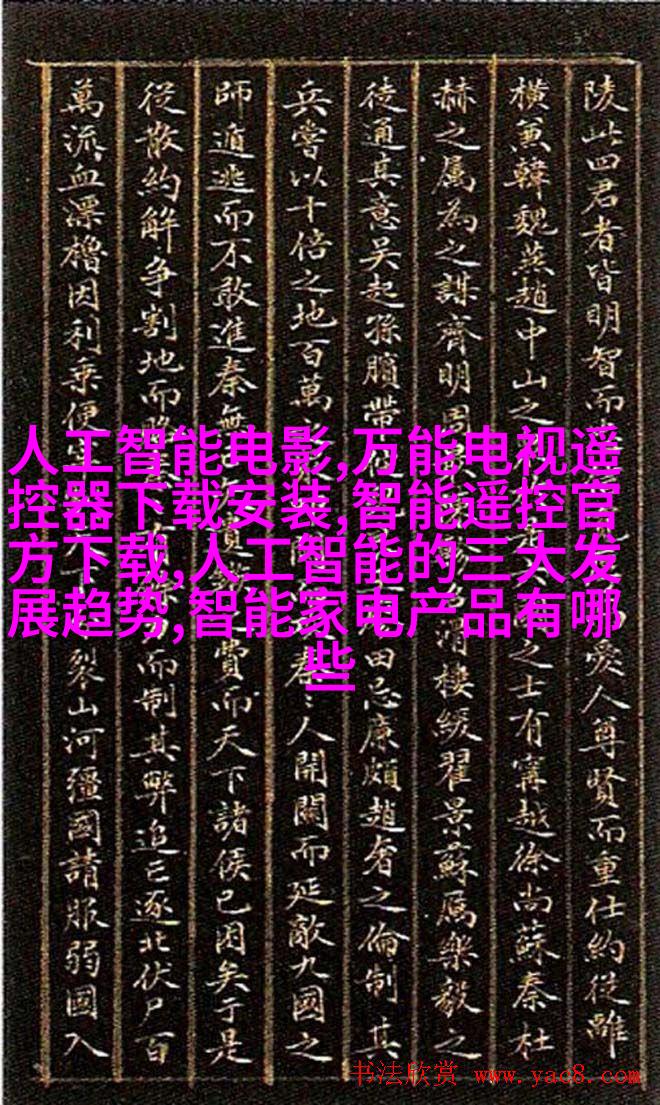 陵此四君者皆明智而愛人尊賢而重仕約從離
橫兼韓魏燕趙中山之之士有甯越徐尚蘇秦杜
赫之属為之謀齊明周滑樓緩翟景蘇厲樂毅之
徒通其意吴起孫臏帶佗田忌廉頗趙奢之倫制其
兵嘗以十倍之地百萬秦〻人開關而延敵九國之
師遁逃而不敢進秦無費而天下諸侯已困矣于是
從散約解爭割地而賂而制其弊追亡逐北伏尸百
萬流血漂櫓因利乘便裂山河疆國請服弱國入
人工智能电影,万能电视遥
控器下载安装,智能遥控官
方下载,人工智能的三大发
展趋势,智能家电产品有哪
些
书法欣赏 www.yac8.com